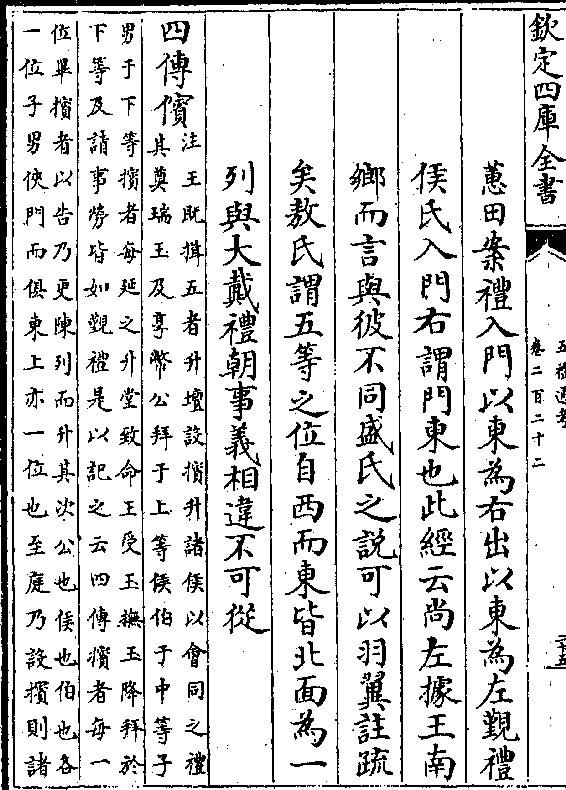 欽定四庫全書
五禮通考
卷二百二十二
蕙田案禮入門以東為右出以東為左覲禮
侯氏入門右謂門東也此經云尚左據王南
鄉而言與彼不同盛氏之説可以羽翼註疏
矣敖氏謂五等之位自西而東皆北面為一
列與大戴禮朝事義相違不可從
四傳擯
注王既揖五者升壇設擯升諸侯以會同之禮
其奠瑞玉及享幣公拜于上等侯伯于中等子
男于下等擯者每延之升堂致命王受玉撫玉降拜於
下等及請事勞皆如覲禮是以記之云四傳擯者每一
位畢擯者以告乃更陳列而升其次公也侯也伯也各
一位子男俠門而俱東上亦一位也至庭乃設擯則諸